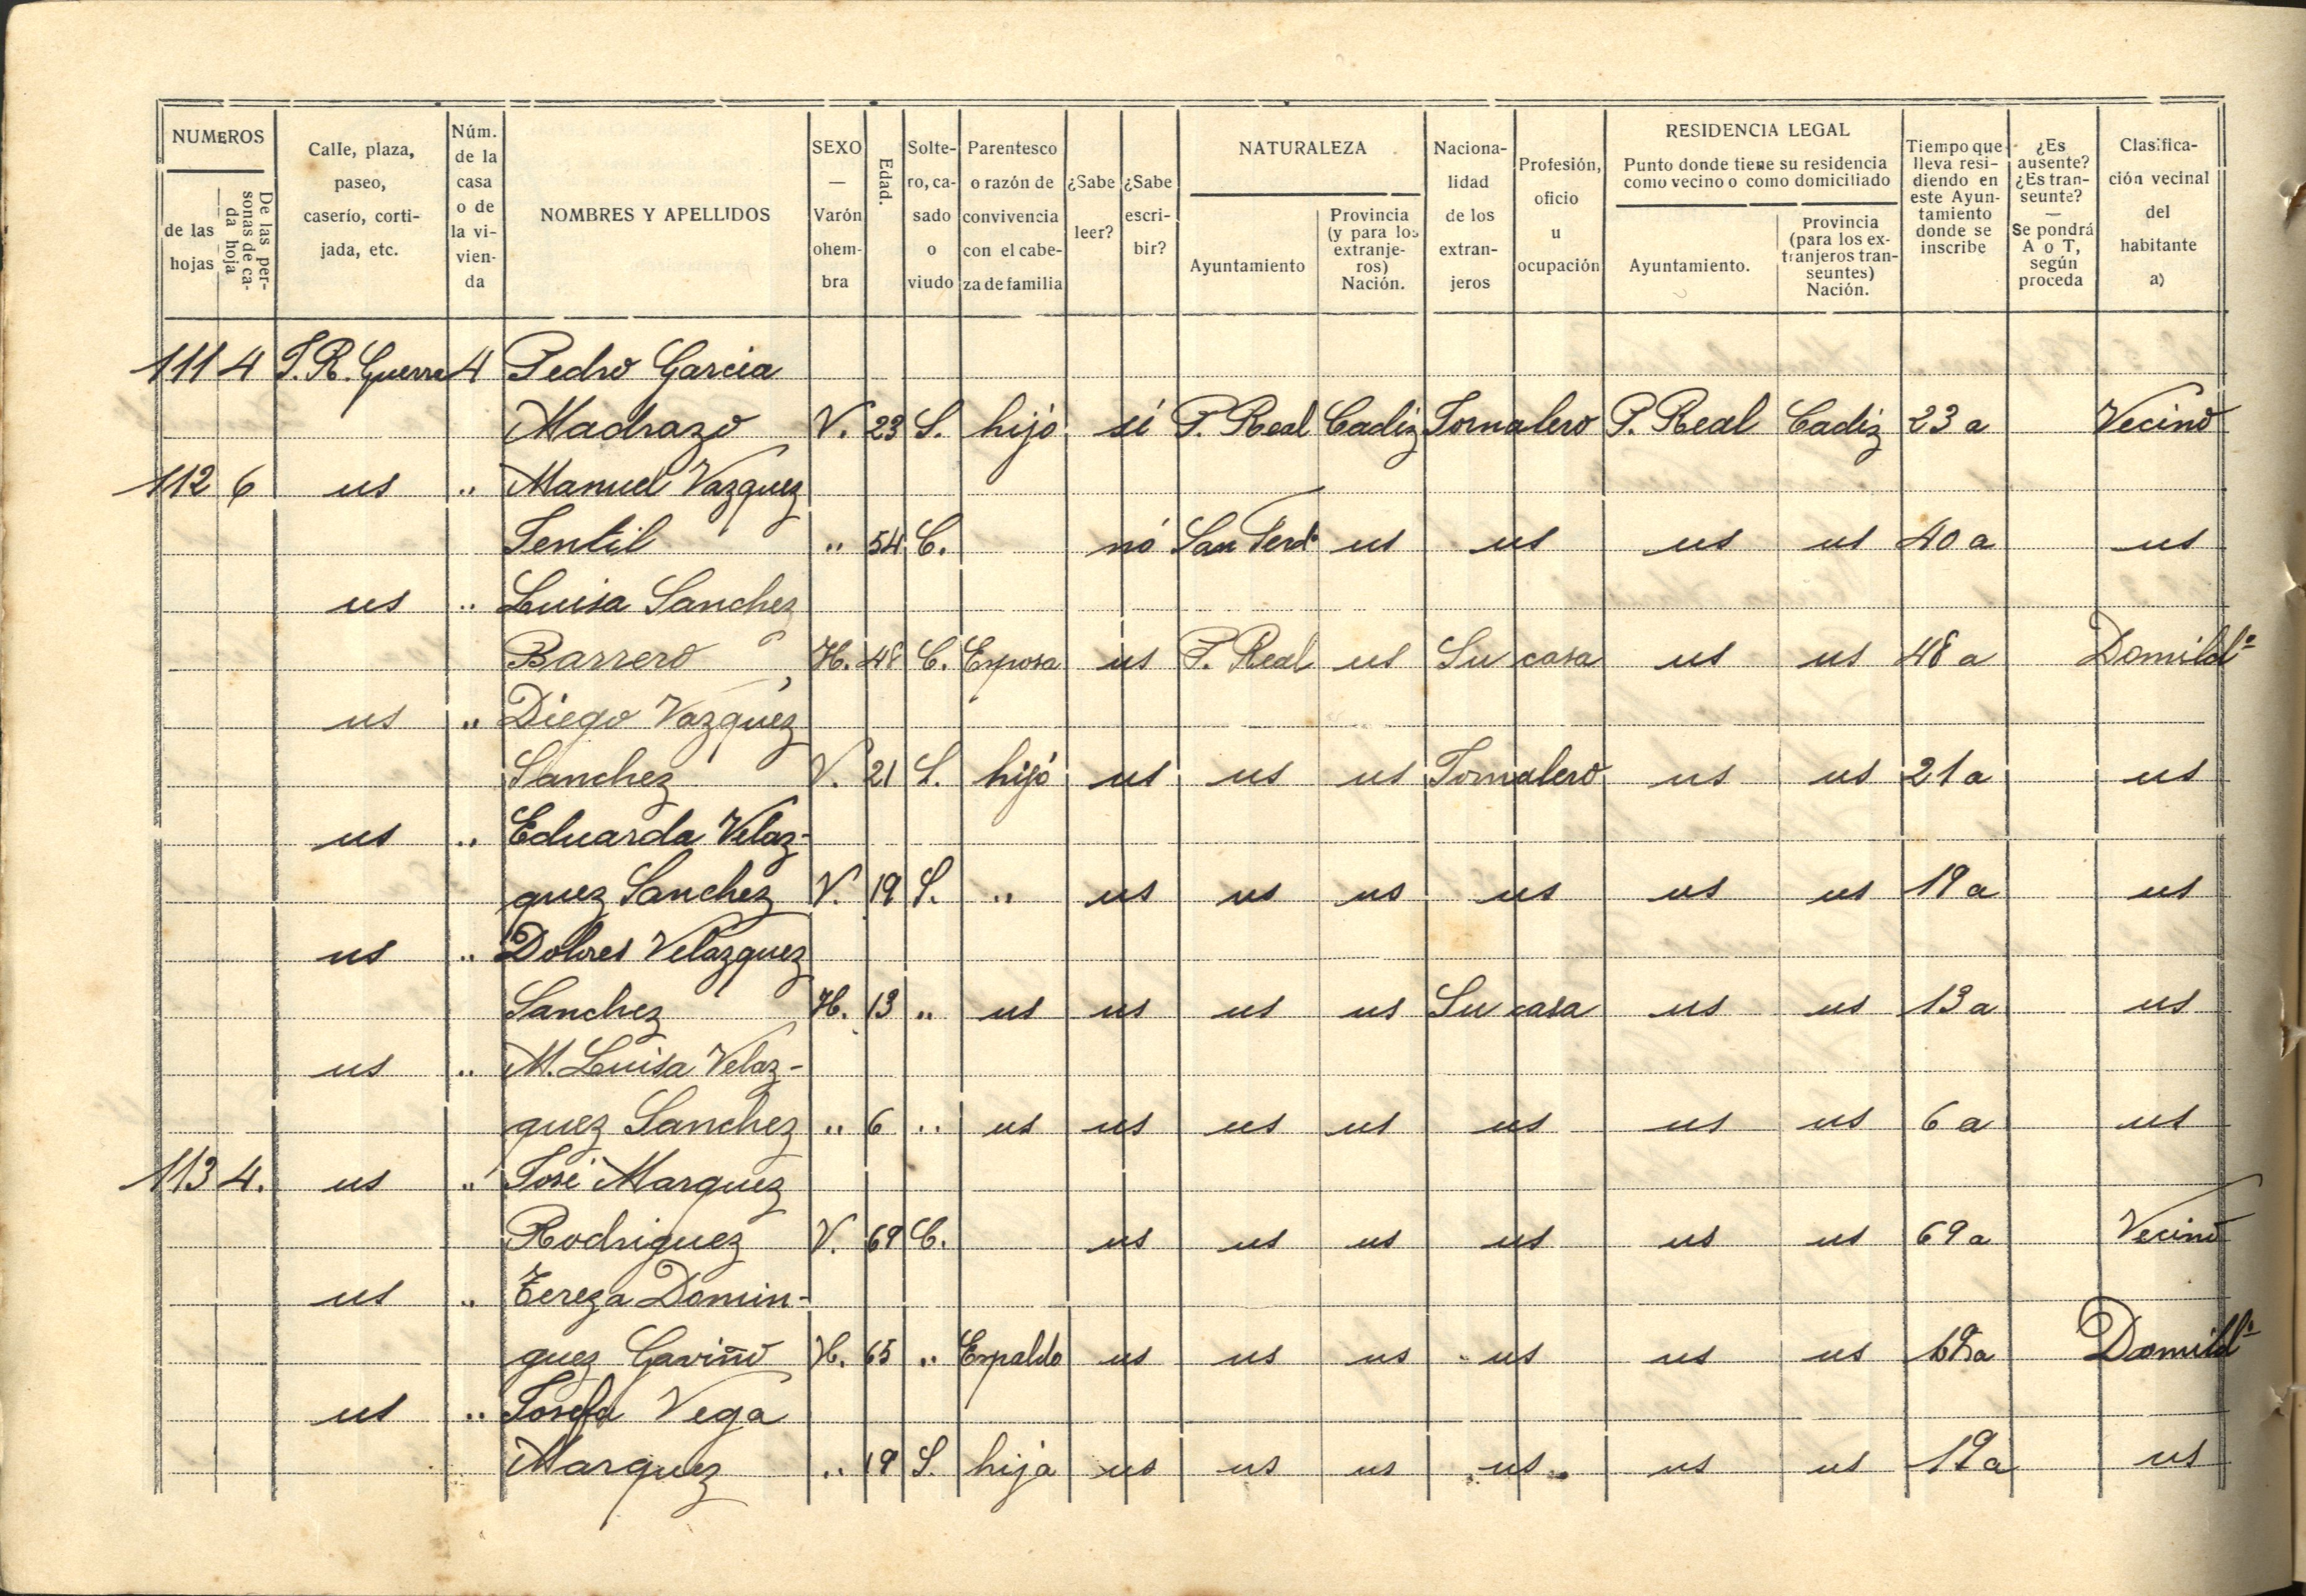 NUMEROS
de las hojas
De las personas de cada hoja
Calle, plaza, paseo, caserío, cortijada, etc.
Núm. de la casa o de la vivienda
NOMBRES Y APELLIDOS
SEXO — Varón o hembra
Edad.
Soltero, casado o viudo
Parentesco o razón de convivencia con el cabeza de familia
¿Sabe leer?
¿Sabe escribir?
NATURALEZA
Ayuntamiento
Provincia (y para los extranjeros) Nación.
Nacionalidad de los extranjeros
Profesión, oficio u ocupación
RESIDENCIA LEGAL
Punto donde tiene su residencia como vecino o como domiciliado
Ayuntamiento.
Provincia (para los extranjeros transeuntes) Nación.
Tiempo que lleva residiendo en este Ayuntamiento donde se inscribe
¿Es ausente? ¿Es transeunte? — Se pondrá A o T, según proceda
Clasificación vecinal del habitante a)
111 4 T. R. Guerra 4 Pedro Garcia
Madrazo V. 23 S. hijo si P. Real Cadiz Jornalero P. Real Cadiz 23 a Vecino
112 6 us " Manuel Vazquez
Gentil " 54 C. nó San Ferdº us us us us 40 a us
us " Luisa Sanchez
Barrero H. 48 C. Esposa us P. Real us Su casa us us 48 a Domildº
us " Diego Vazquez
Sanchez V. 21 S. hijo us us us Jornalero us us 21 a us
us " Eduarda Velaz-
quez Sanchez V. 19 S. " us us us us us us 19 a us
us " Dolores Velazquez
Sanchez H. 13 " us us us us Su casa us us 13 a us
us " M. Luisa Velaz-
quez Sanchez " 6 " us us us us us us us 6 a us
113 4. us " José Marquez
Rodriguez V. 69 C. us us us us us us 69 a Vecino
us " Tereza Domin-
guez Gaviño H. 65 " us us us us us us Domildº
us " Josefa Vega
Marquez " 19 S. hija us us us us us us 19 a us